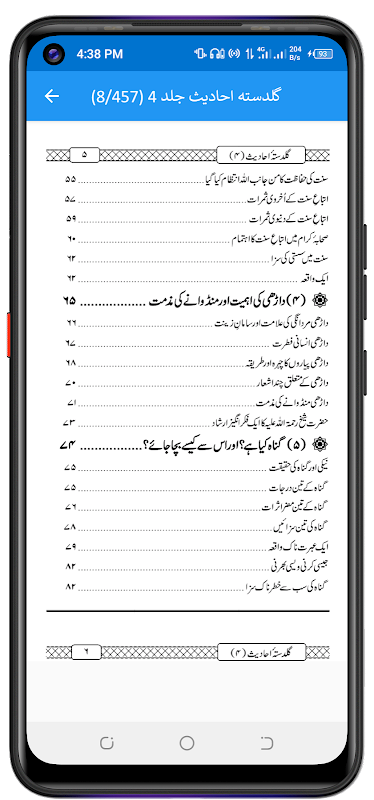 4:38 PM 4G 204 B/s 93
گلدسته احادیث جلد 4 (8/457)
گلدستۂ احادیث (۴) ۵
سنت کی حفاظت کا من جانب اللہ انتظام کیا گیا ۵۵
اتباعِ سنت کے اُخروی ثمرات ۵۷
اتباعِ سنت کے دنیوی ثمرات ۵۹
صحابۂ کرام میں اتباعِ سنت کا اہتمام ۶۰
سنت میں سستی کی سزا ۶۲
ایک واقعہ ۶۲
(۴) داڑھی کی اہمیت اور منڈوانے کی مذمت ۶۵
داڑھی مردانگی کی علامت اور سامانِ زینت ۶۶
داڑھی انسانی فطرت ۶۷
داڑھی پیاروں کا چہرہ اور طریقہ ۶۸
داڑھی کے متعلق چند اشعار ۷۰
داڑھی منڈوانے کی مذمت ۷۱
حضرت شیخ رحمۃ اللہ علیہ کا ایک فکر انگیز ارشاد ۷۳
(۵) گناہ کیا ہے؟ اور اس سے کیسے بچا جائے؟ ۷۴
نیکی اور گناہ کی حقیقت ۷۵
گناہ کے تین درجات ۷۵
گناہ کے تین مضر اثرات ۷۶
گناہ کی تین سزائیں ۷۸
ایک عبرت ناک واقعہ ۷۹
جیسی کرنی ویسی بھرنی ۸۲
گناہ کی سب سے خطرناک سزا ۸۲
گلدستۂ احادیث (۴) ۶